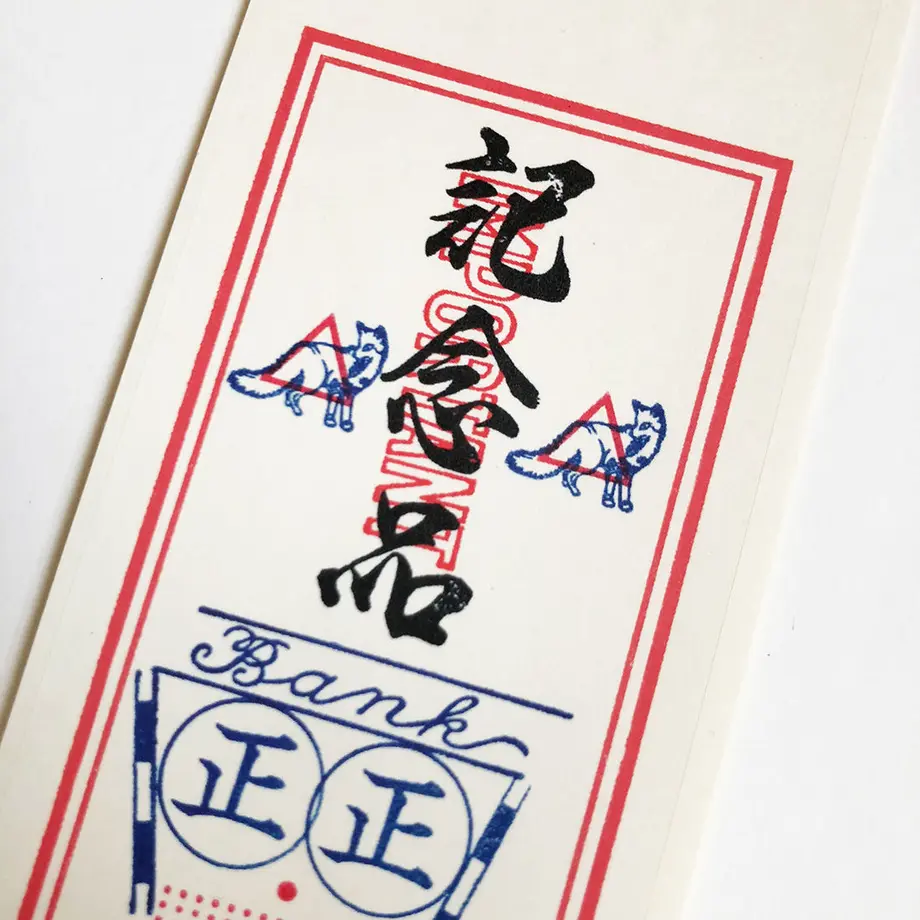 記念品
IMPORTANT
Bank
正 正